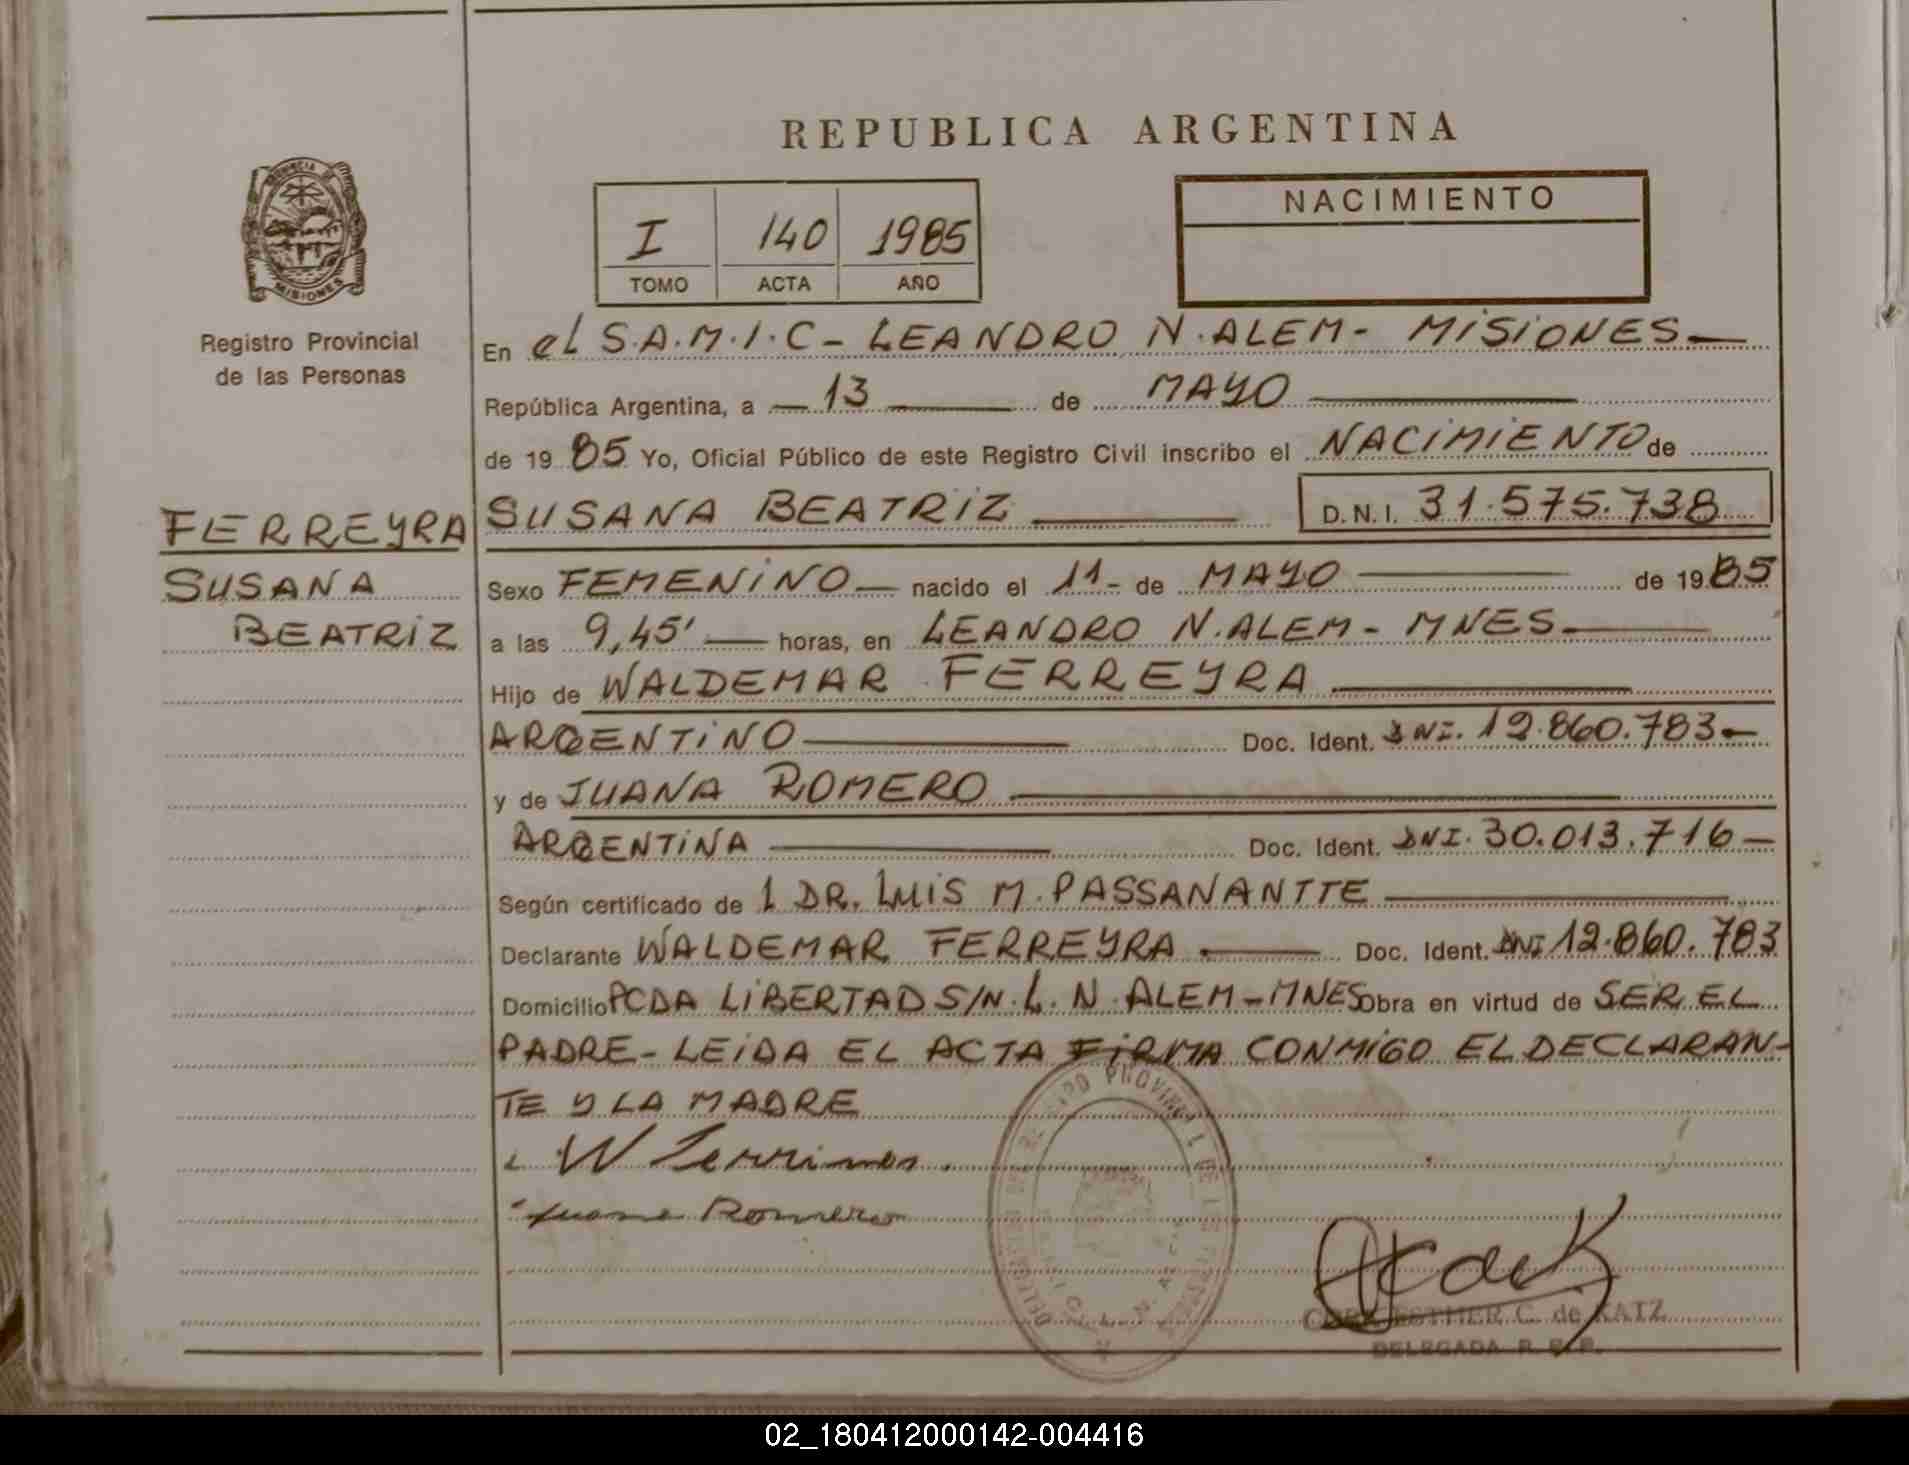 REPUBLICA ARGENTINA
PROVINCIA DE
MISIONES
Registro Provincial
de las Personas
I 140 1985
TOMO ACTA AÑO
NACIMIENTO
FERREYRA
SUSANA
BEATRIZ
En el S.A.M.I.C - LEANDRO N. ALEM - MISIONES
República Argentina, a 13 de MAYO
de 1985 Yo, Oficial Público de este Registro Civil inscribo el NACIMIENTO de
SUSANA BEATRIZ D.N.I. 31.575.738
Sexo FEMENINO nacido el 11 - de MAYO de 1985
a las 9,45' horas, en LEANDRO N. ALEM - MNES
Hijo de WALDEMAR FERREYRA
ARGENTINO Doc. Ident. DNI. 12.860.783
y de JUANA ROMERO
ARGENTINA Doc. Ident. DNI. 30.013.716
Según certificado de L DR. LUIS M. PASSANANTTE
Declarante WALDEMAR FERREYRA Doc. Ident. DNI 12.860.783
Domicilio PCDA LIBERTAD S/N. L. N. ALEM - MNES Obra en virtud de SER EL
PADRE - LEIDA EL ACTA FIRMA CONMIGO EL DECLARAN-
TE Y LA MADRE
Juana Romero
ESTHER C. de KATZ
DELEGADA R. P. P.
02_180412000142-004416